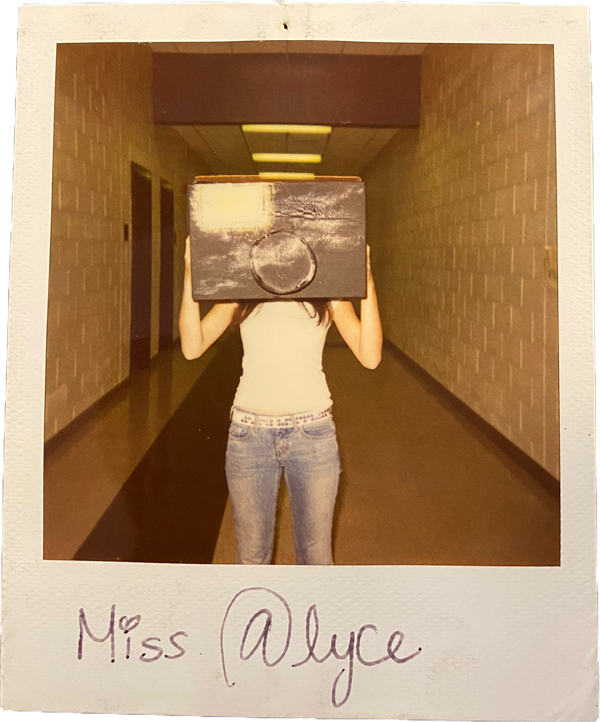 Miss @lyce